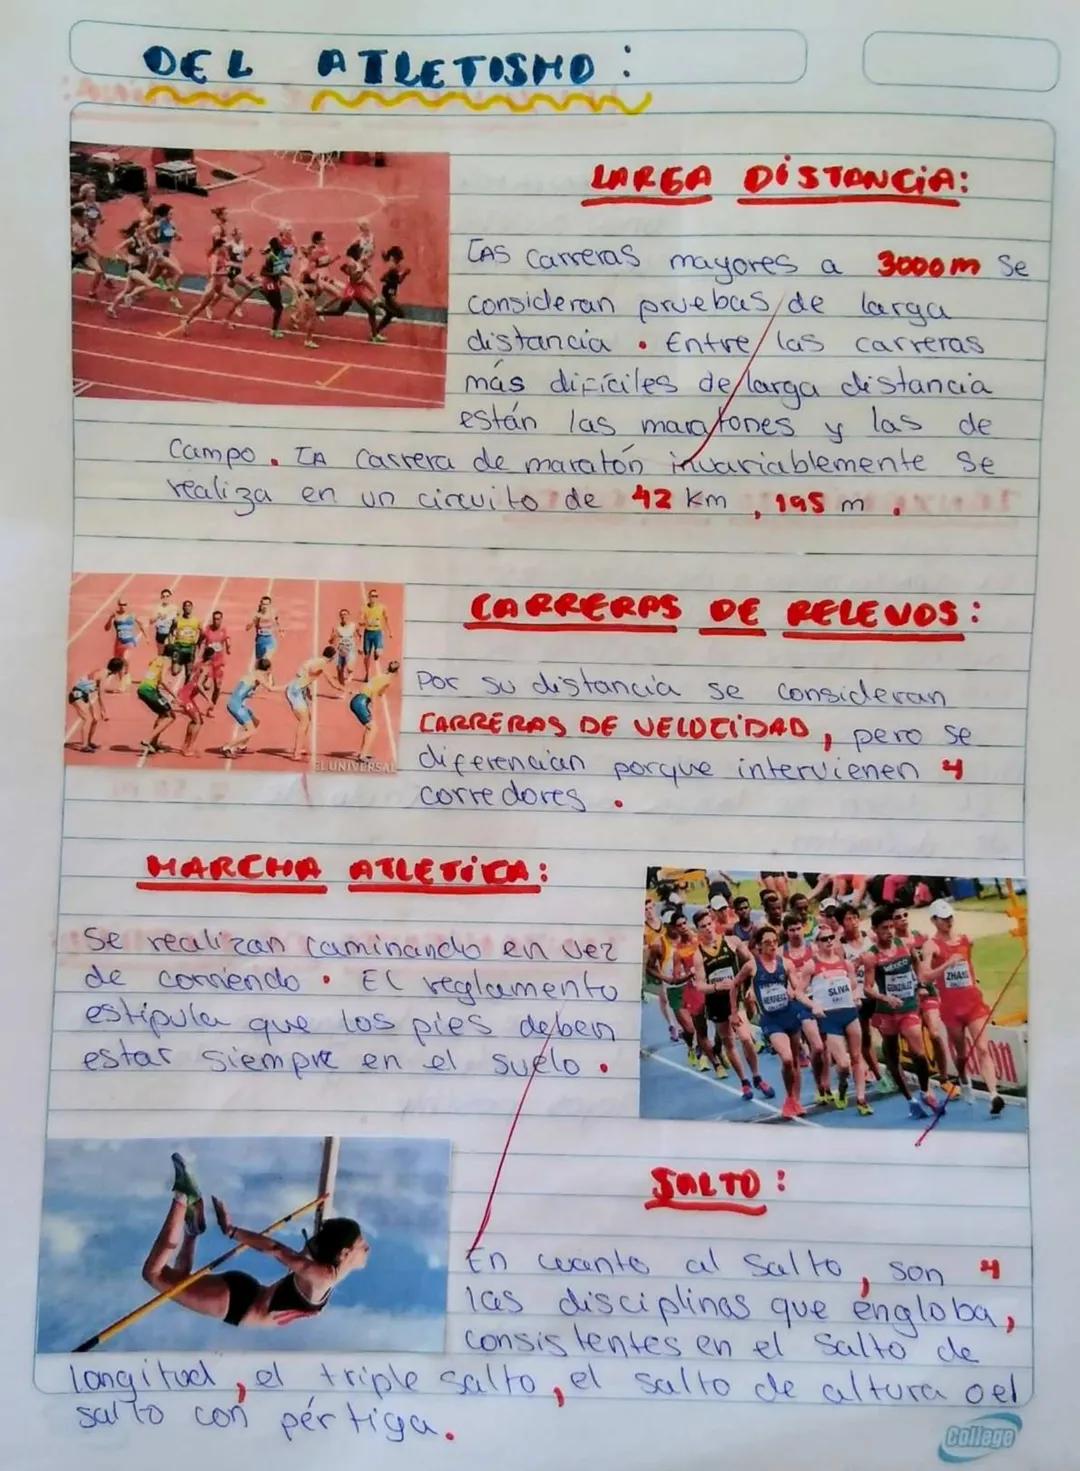 DEL ATLETISMO:
LARGA DISTANCIA:
LAS carreras mayores a 3000m se
consideran pruebas de larga
distancia. Entre las carreras
más difíciles de larga distancia
están las maratones y las de
Campo. LA Carrera de maratón invariablemente se
realiza en un circuito de 42 Km, 195 m.
CARRERAS DE RELEVOS:
Por su distancia se consideran
CARRERAS DE VELOCIDAD, pero se
diferencian porque intervienen 4
corredores.
EL UNIVERSAL
MARCHA ATLETICA:
Se realizan caminando en vez
de corriendo. El reglamento
estipula que los pies deben
estar siempre en el suelo.
SLIVA
MÉXICO
GONZÁLEZ
ZHANG
SALTO:
En cuanto al salto, son 4
las disciplinas que engloba,
consistentes en el salto de
longitud, el triple salto, el salto de altura o el
salto con pértiga.
College